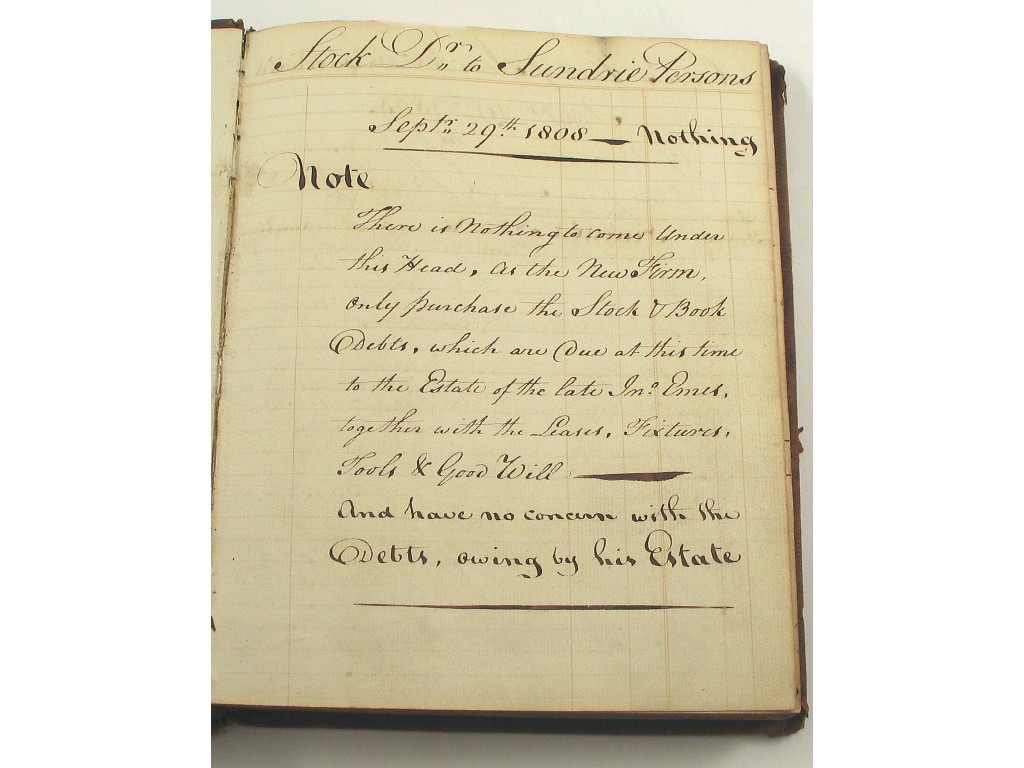 Stock Dr. to Sundrie Persons
Septr. 29th. 1808 — Nothing
Note
There is Nothing to come Under
this Head, as the New Firm,
only purchase the Stock & Book
Debts, which are Due at this time
to the Estate of the late Jno. Emes,
together with the Leases, Fixtures,
Tools & Good Will —
And have no concern with the
Debts, owing by his Estate